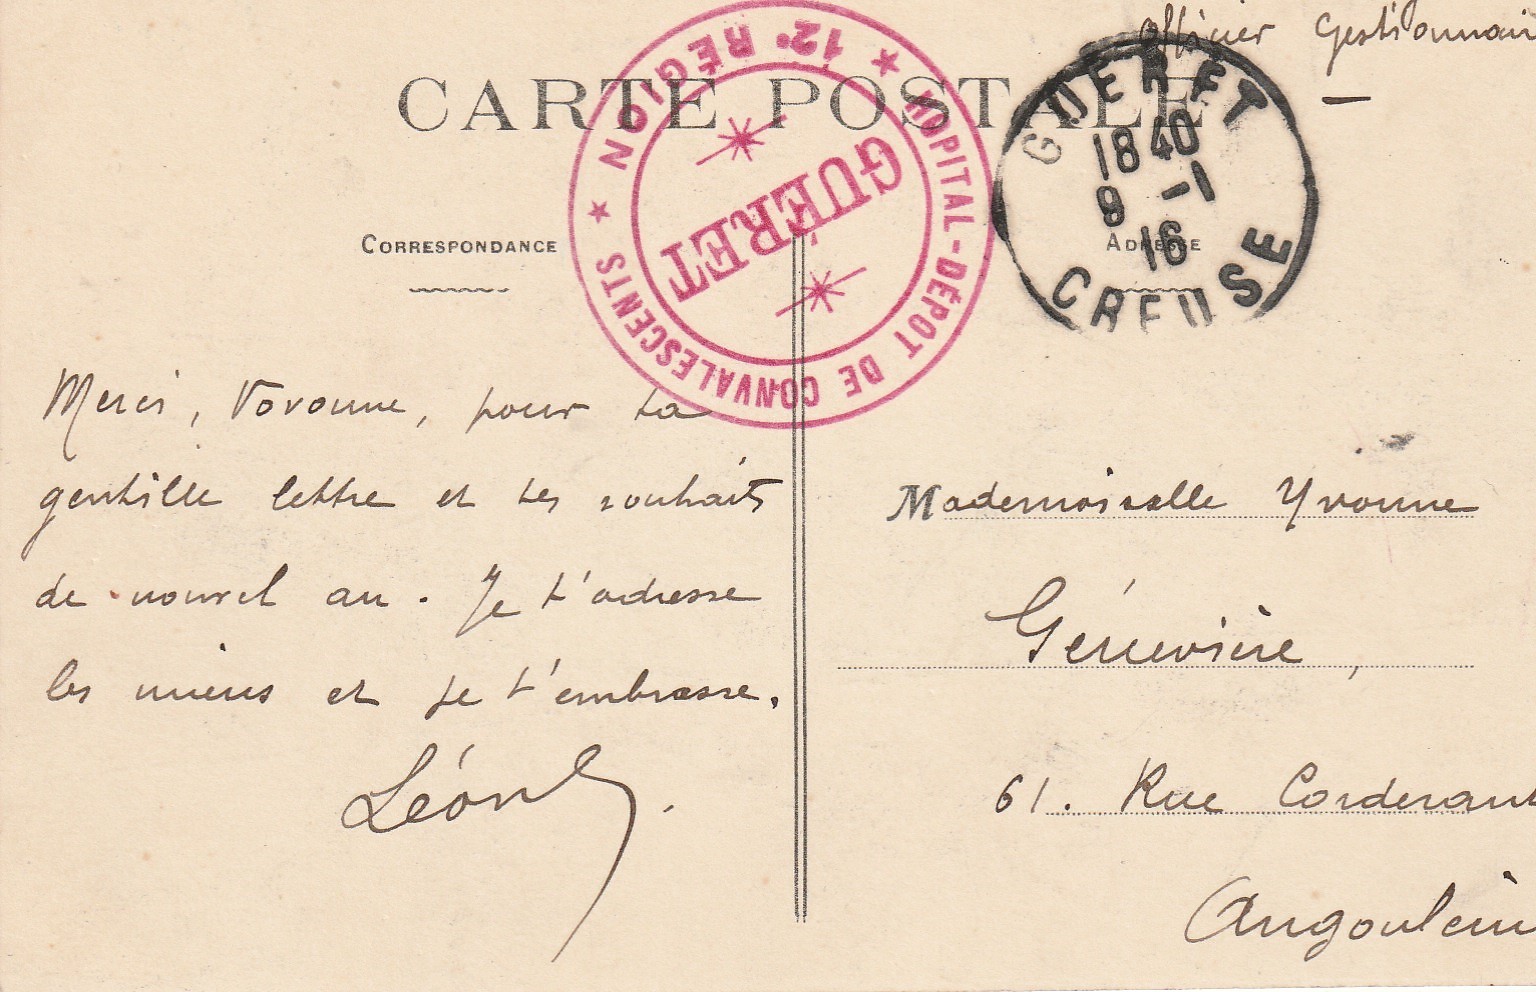 Officier Gestionnair
CARTE POSTALE
HOPITAL-DÉPOT DE CONVALESCENTS
★ 12e RÉGION ★
GUÉRET
GUERET
1840
9 -1
16
CREUSE
CORRESPONDANCE
ADRESSE
Merci, Vovonne, pour ta
gentille lettre et tes souhaits
de nouvel an. Je t'adresse
les miens et je t'embrasse.
Léon
Mademoiselle Yvonne
Génevière,
61. Rue Corderant
Angoulêm